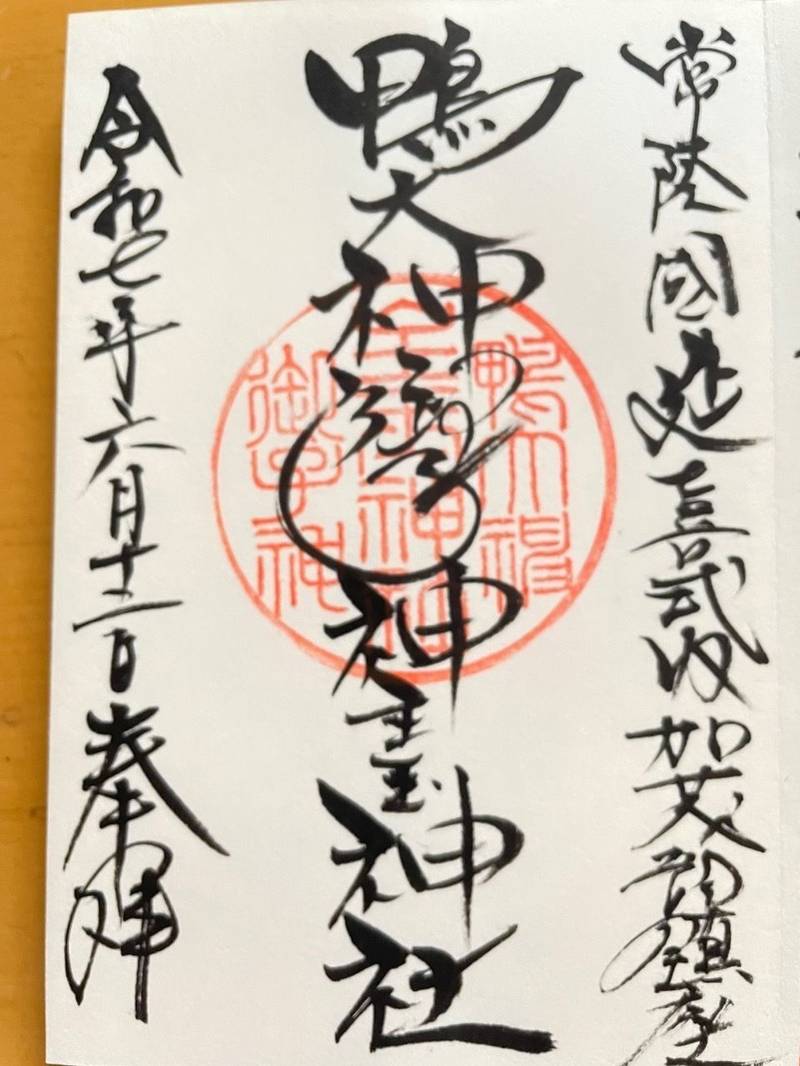 常陸國延喜式内加茂部鎮座
鴨大神御子神主玉神社
令和七年六月十二日奉拝
鴨大神
主玉神社
御子神